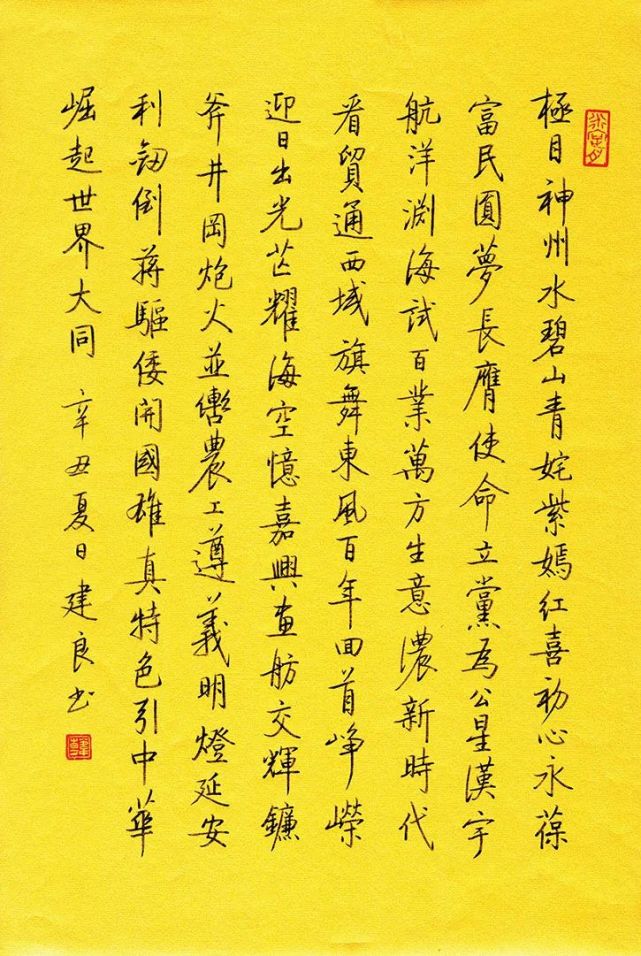 極目神州水碧山青姹紫嫣紅喜初心永葆
富民圓夢長膺使命立黨為公星漢宇
航洋淵海試百業萬方生意濃新時代
看貿通西域旗舞東風百年回首崢嶸
迎日出光芒耀海空憶嘉興畫舫交輝鐮
斧井岡炮火並轡農工遵義明燈延安
利劒倒蔣驅倭開國雄真特色引中華
崛起世界大同 辛丑夏日建良书